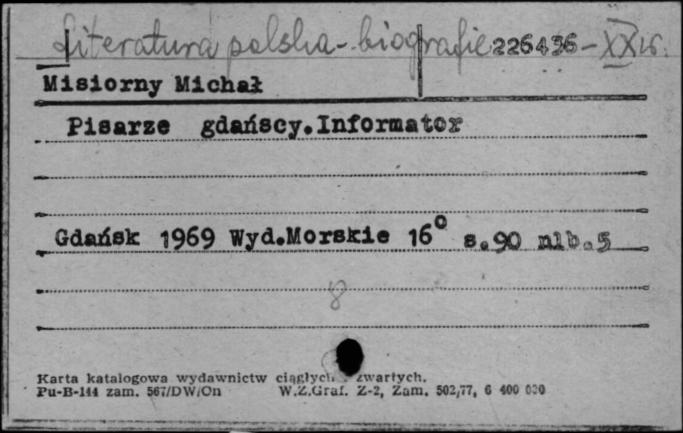 Literatura polska - biografie 226436 - XX w.
Misiorny Michał
Pisarze gdańscy.Informator
Gdańsk 1969 Wyd.Morskie 16° s.90 nlb.5
8
Karta katalogowa wydawnictw ciągłych i zwartych.
Pu-B-144 zam. 567/DW/On W.Z.Graf. Z-2, Zam. 502/77, 6 400 030